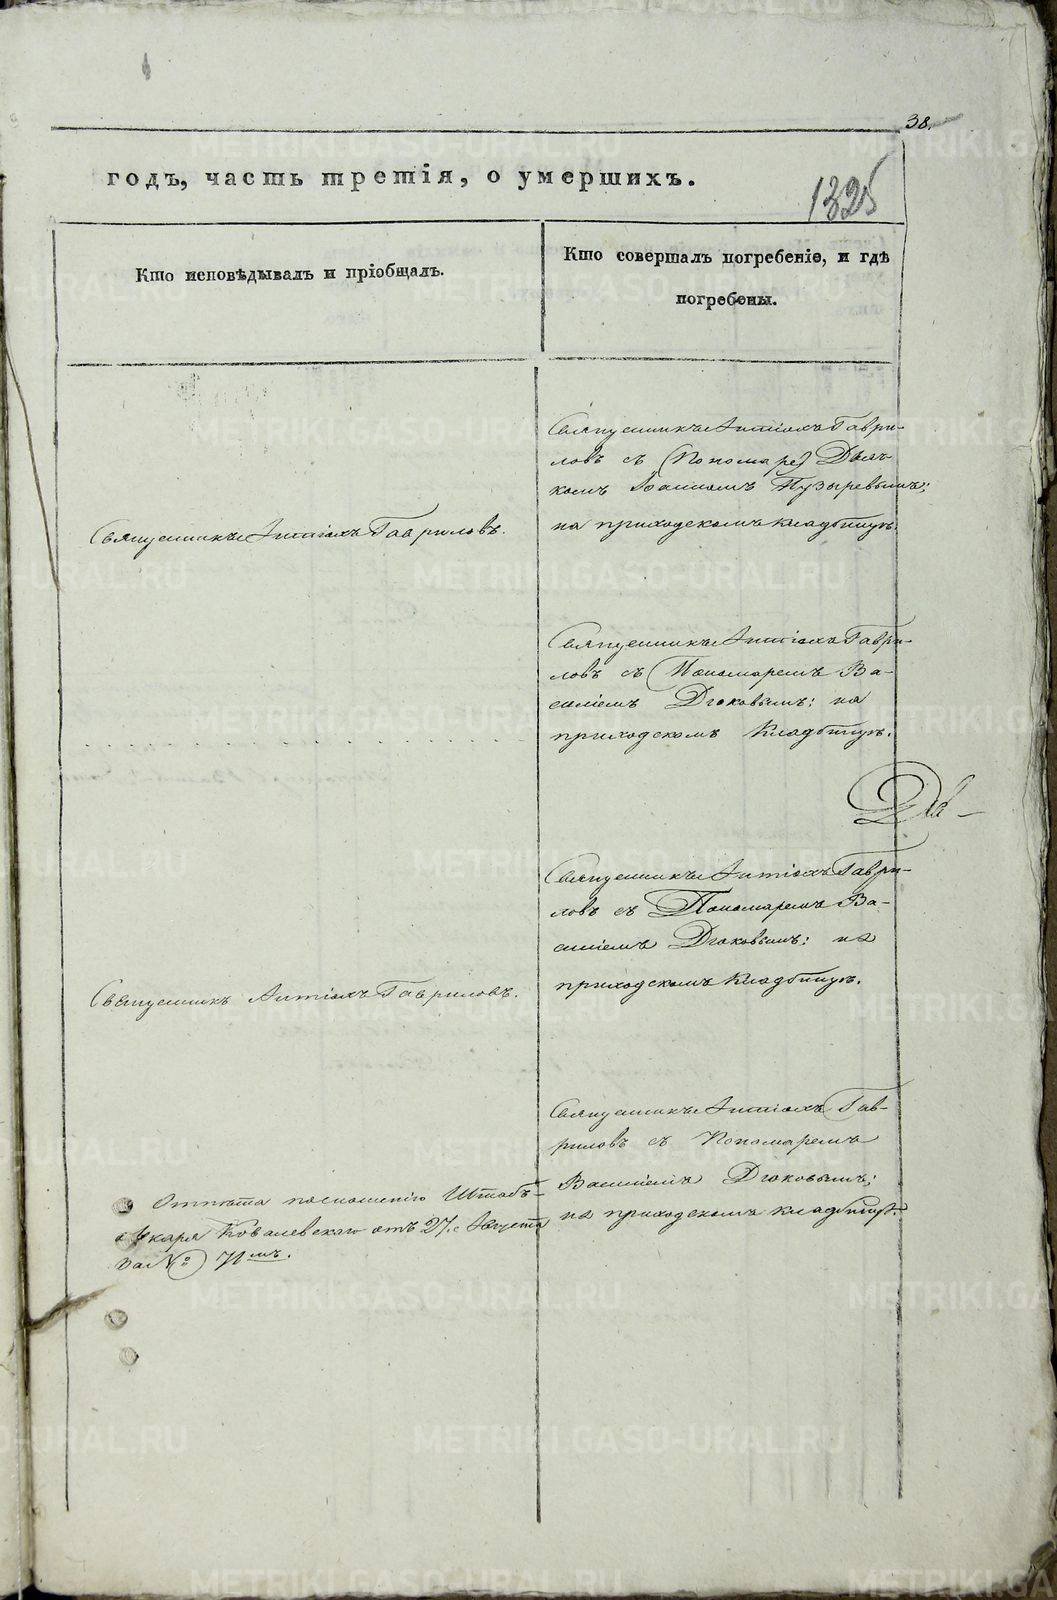 38.
годъ, часть третія, о умершихъ.
1325
Кто исповѣдывалъ и пріобщалъ.
Кто совершалъ погребеніе, и гдѣ
погребены.
Священникъ Антіохъ Гавриловъ.
Священникъ Антіохъ Гаври-
ловъ съ (Пономаре) Дьяч-
комъ Іоанномъ Пузыревымъ;
на приходскомъ кладбищѣ.
Священникъ Антіохъ Гаври-
ловъ съ Пономаремъ Ва-
силіемъ Дюковымъ; на
приходскомъ Кладбищѣ.
Священникъ Антіохъ Гавриловъ.
Священникъ Антіохъ Гаври-
ловъ съ Пономаремъ Ва-
силіемъ Дюковымъ; на
приходскомъ Кладбищѣ.
Отпѣта по сношенію Штабъ-
лѣкаря Ковалевскаго отъ 27. Августа
за № 71мъ.
Священникъ Антіохъ Гав-
риловъ съ Пономаремъ
Василіемъ Дюковымъ;
на приходскомъ кладбищѣ.
METRIKI.GASO-URAL.RU